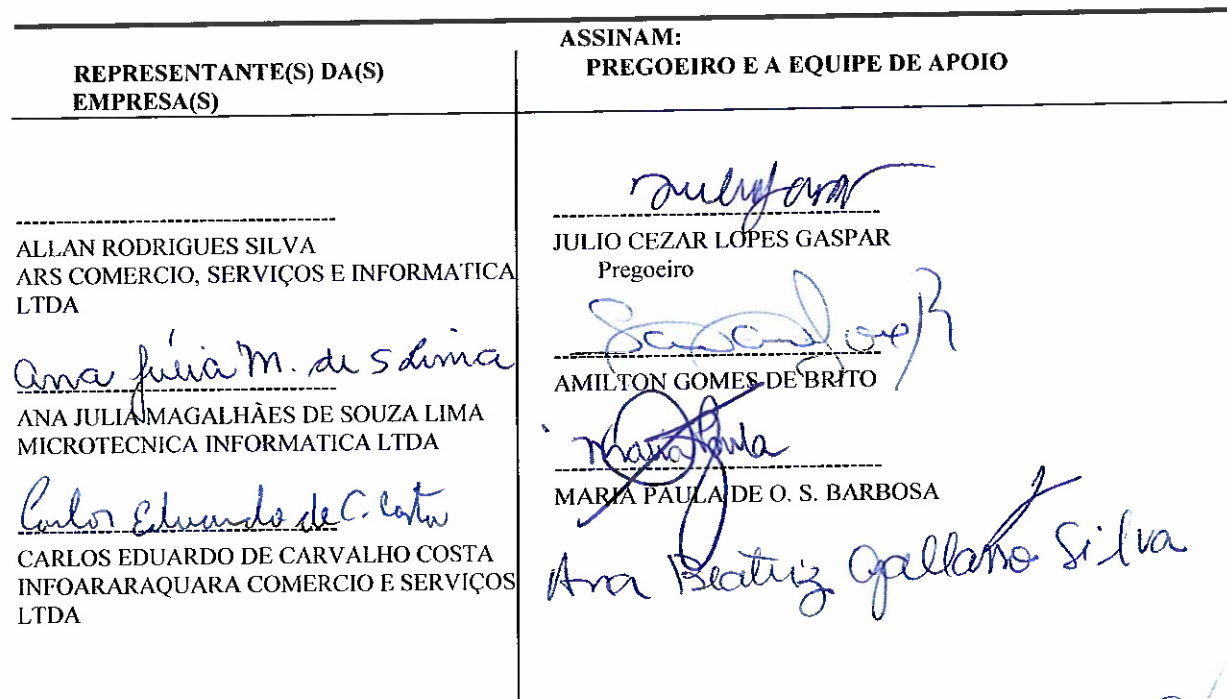 REPRESENTANTE(S) DA(S)
EMPRESA(S)
ALLAN RODRIGUES SILVA
ARS COMERCIO, SERVIÇOS E INFORMATICA
LTDA
Ana Júlia M. de S Lima
ANA JULIA MAGALHÃES DE SOUZA LIMA
MICROTECNICA INFORMATICA LTDA
Carlos Eduardo de C. Costa
CARLOS EDUARDO DE CARVALHO COSTA
INFOARARAQUARA COMERCIO E SERVIÇOS
LTDA
ASSINAM:
PREGOEIRO E A EQUIPE DE APOIO
JULIO CEZAR LOPES GASPAR
Pregoeiro
AMILTON GOMES DE BRITO
Maria Paula
MARIA PAULA DE O. S. BARBOSA
Ana Beatriz Silva